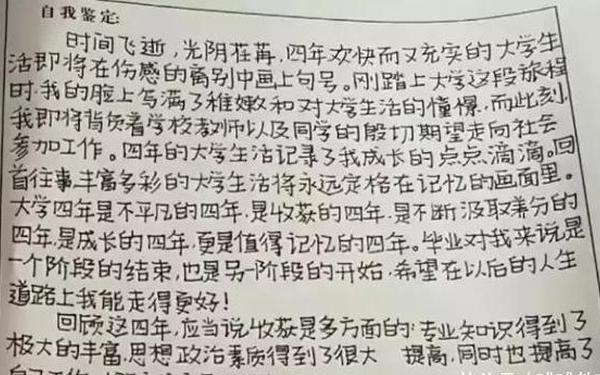 自我鉴定:
时间飞逝,光阴荏苒,四年欢快而又充实的大学生
活即将在伤感的离别中画上句号。刚踏上大学这段旅程
时,我的脸上写满了稚嫩和对大学生活的憧憬,而此刻,
我即将背负着学校教师以及同学的殷切期望走向社会
参加工作。四年的大学生活记录了我成长的点点滴滴。回
首往事丰富多彩的大学生活将永远定格在记忆的画面里。
大学四年是不平凡的四年,是收获的四年,是不断汲取养分的
四年,是成长的四年,更是值得记忆的四年。毕业对我来说是
一个阶段的结束,也是另一阶段的开始,希望在以后的人生
道路上我能走得更好!
回顾这四年,应当说收获是多方面的:专业知识得到了
极大的丰富,思想政治素质得到了很大 提高,同时也提高了